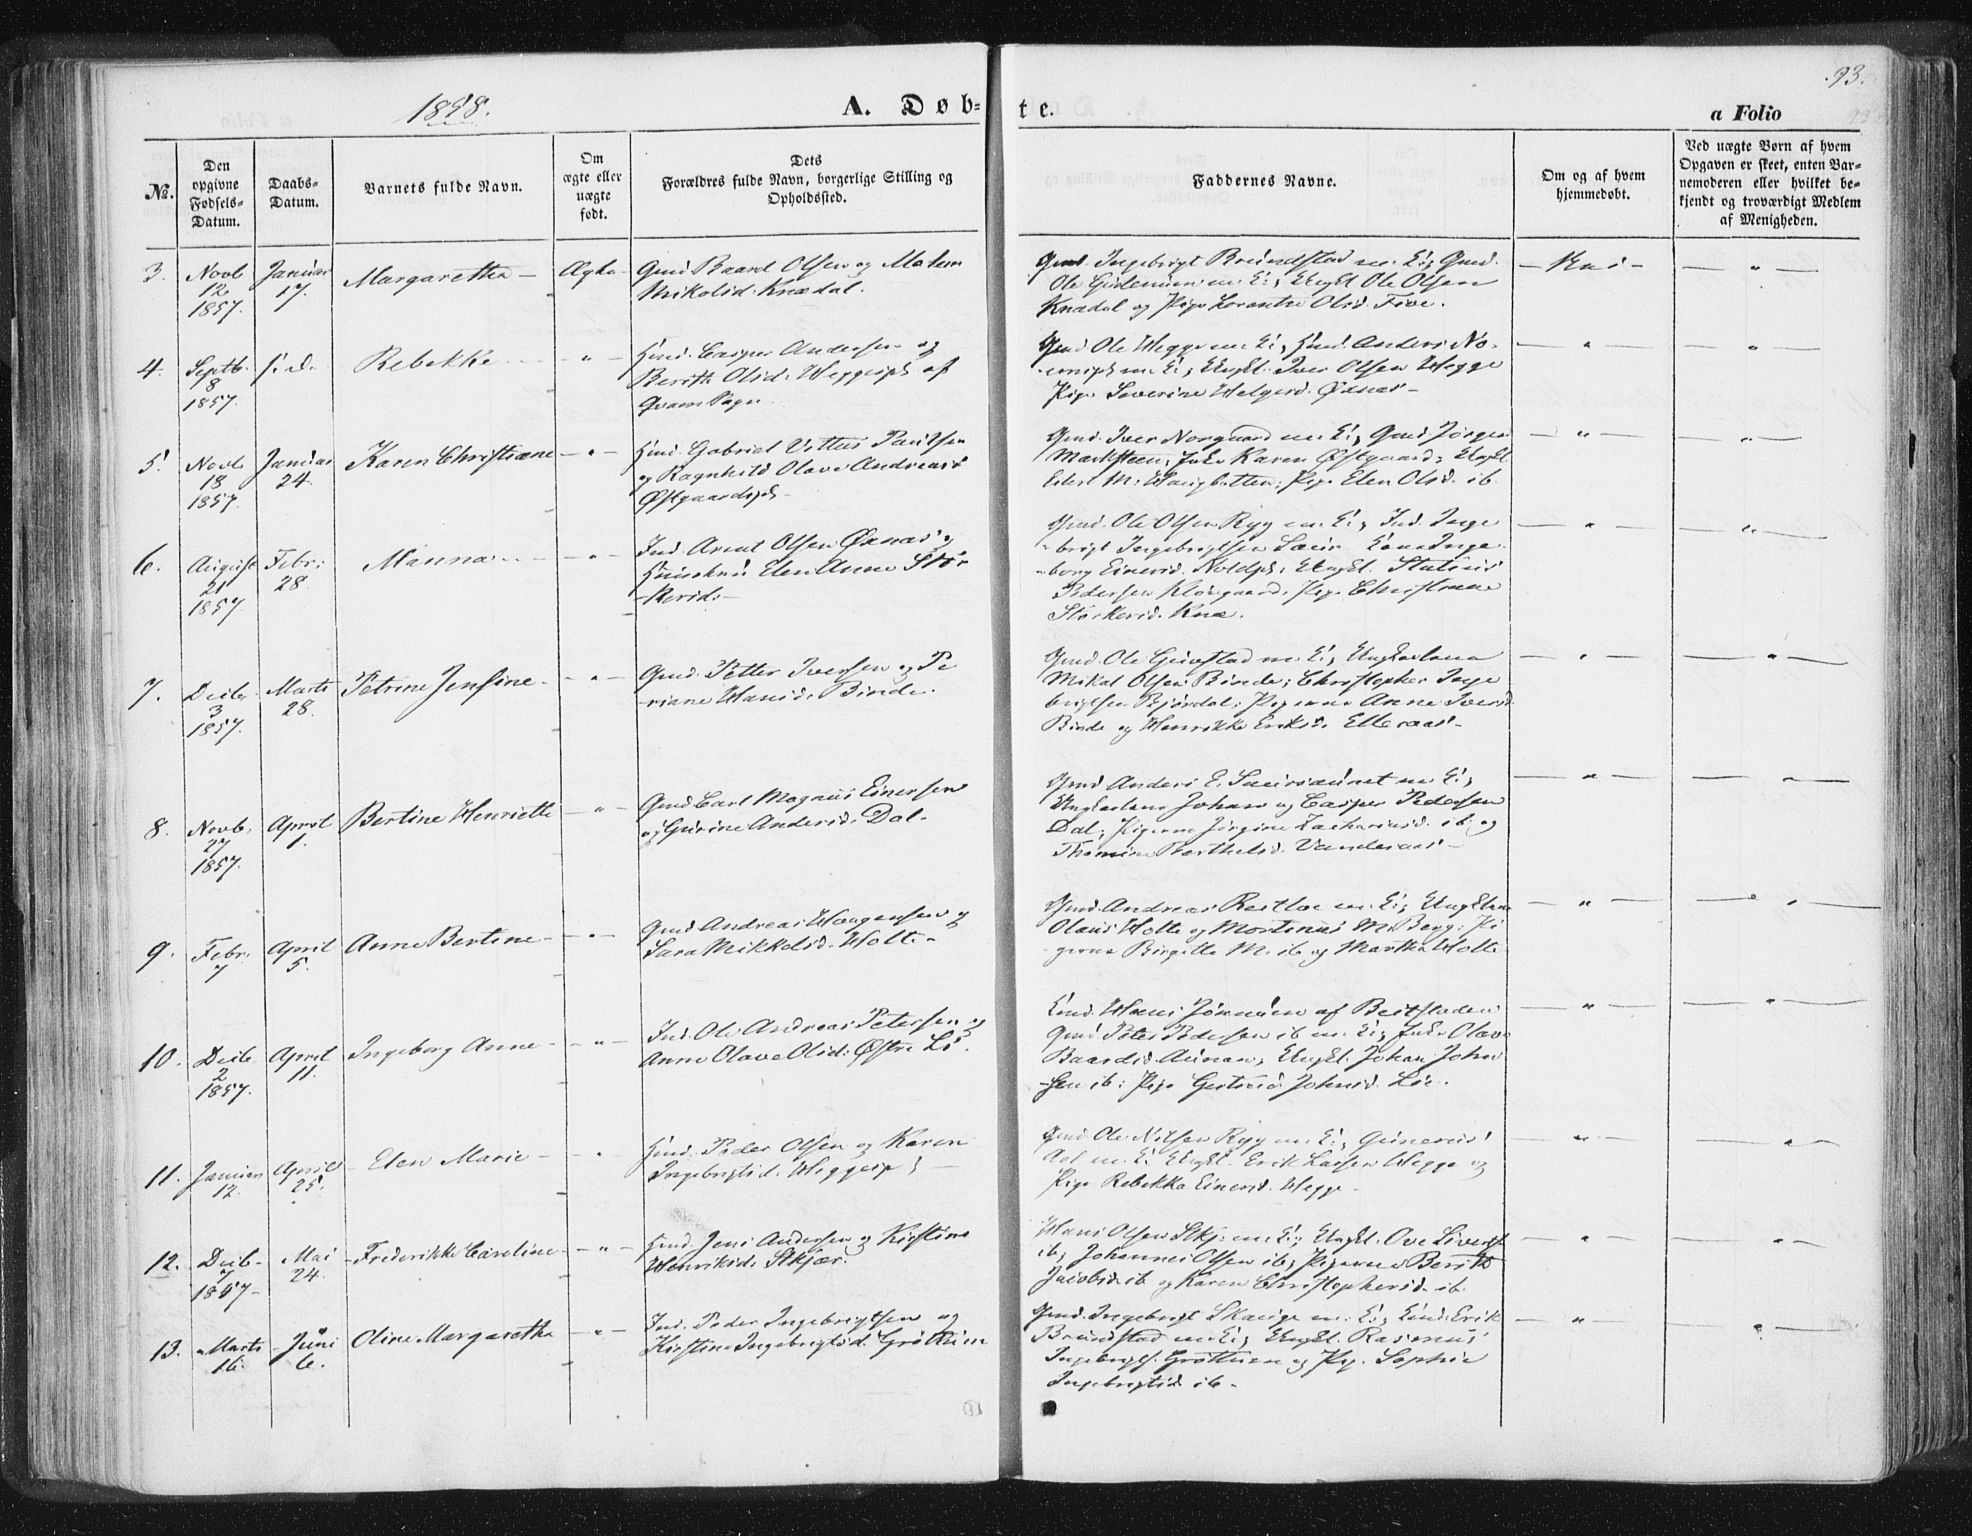 1858.
A. Døb-
te.
93.
a Folio
No.
Den
opgivne
Fødsels-
Datum.
Daabs-
Datum.
Barnets fulde Navn.
Om
ægte eller
uægte
født.
Dets
Forældres fulde Navn, borgerlige Stilling og
Opholdssted.
Faddernes Navne.
Om og af hvem
hjemmedøbt.
Ved uægte Børn af hvem
Opgaven er skeet, enten Bar-
nemoderen eller hvilket be-
kjendt og troværdigt Medlem
af Menigheden.
3.
Novb
12
1857.
Januar
17.
Margaretha
Ægte
Gmd Baard Olsen og
Mikelsd. Knædal.
Gmd Ingebrigt Brundstad m. K; Gmd.
Ole m. K; Ungk. Ole Olsen
Knædal og Pige Lorentse Olsd. Five.
Nei
4.
Septb.
18
1857.
s. d.
Rebekke
"
Hmd. Casper Andersen og
Berith Olsd. Heggespl af
Qvam Sogn.
Gmd Ole Hegge m. K; Hmd. Anders
m. K; Ungk. Iver Olsen Hegge
Pige Severine Helgesd. Øxnes
5.
Novb
18
1857.
Januar
24.
Karen Christiane
"
Hmd. Gabriel Vittus Paulsen
og Ragnhild Olave Andreasd
Østgaardspl
Gmd. Iver Norgaard m. K; Gmd Jørgen
Marksteen; Enke Karen Østgaard; Ungk
Eder M. Haugbotten; Pige Elen Olsd. ib.
6.
August
21
1857.
Febr:
28.
Manna
"
Ind. Arent Olsen Øxnes og
Huuskone Elen Anne Stør-
kersd.
Gmd. Ole Olsen Ryg m. K; Ind. Inge-
brigt Ingebrigtsen Kone Inge-
borg Einersd. Ungk.
Pedersen Pige Christiane
Størkersd. Knæ.
7.
Decbr
3
1857.
Marts
28.
Petrine Jensine
"
Gmd. Petter Iversen og Pe-
riane Hansd. Binde.
Gmd. Ole Guistad m. K; Ungkarlene
Mikal Olsen Binde; Christopher Inge-
brigtsen Bjørdal; Pigerne Anne Iversd.
Binde og Henrikke Eriksd. Elberaas
8.
Novb.
27
1857.
April
1.
Bertine Henriette
"
Gmd Carl Magnus Einersen
og Gurine Andersd. Dal.
Gmd Anders E. m. K;
Ungkarlene Johan og Casper Pedersen
Dal; Pigerne Jørgine Zachariasd. ib. og
Thomine Berthelsd. Vanderaas
9.
Febr.
7
April
5.
Anne Bertine
"
Gmd Andreas Haagensen og
Sara Mikkelsd. Holte.
Gmd. Andreas m. K; Ungkarlene
Olaus Holte og Mortinus M. Berg; Pi-
gerne Birgitte M. ib og Martha Holte
10.
Decbr
2
1857.
April
11.
Ingeborg Anne
"
Ind. Ole Andreas Petersen og
Anne Olave Olsd: Østre Lø.
Hans af Beitstaden
Gmd Peter Pedersen ib m. K; Enke Olava
Baardsd. Aunan; Ungk. Johan John-
sen ib; Pige Gertrud Johnsd. Lø.
11.
Januar
12.
April
25.
Elen Marie
"
Hmd. Peder Olsen og Karen
Ingebrigtsd. Heggespl
Gmd Ole Nilsen Ryg m. K; Gunerius
m. K Ungk. Erik Larsen Hegge og
Pige Rebekka Einersd. Hegge.
12.
Decb
7
1857
Mai
24.
Frederikke Caroline
"
Hmd. Jens Andersen og Kirstine
Henriksd. Skjær.
Hans Olsen Skj: m. K; Ungk. Ove Siverts.
ib; Johannes Olsen ib; Pigerne Berith
Jacobsd ib og Karen Christophersd. ib.
13.
Marts
16.
Juni
6.
Oline Margaretha
"
Ind. Peder Ingebrigtsen og
Kirstine Ingebrigtsd. Grøthiim
Gmd. Ingebrigt Skauge m. K; Erik
Brundstad m. K; Ungk. Rasmus
Ingebrigts. Grøthiim og Pig. Sophie
Ingebrigtsd ib.